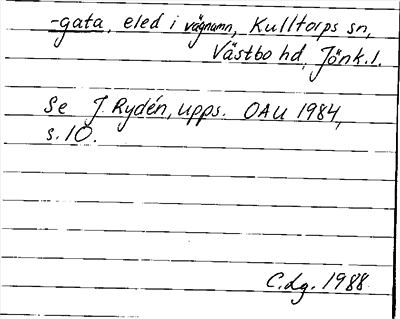 -gata, eled i vägnamn, Kulltorps sn,
Västbo hd, Jönk.l.
Se J. Rydén, upps. OAU 1984,
s. 10.
C.Lg. 1988